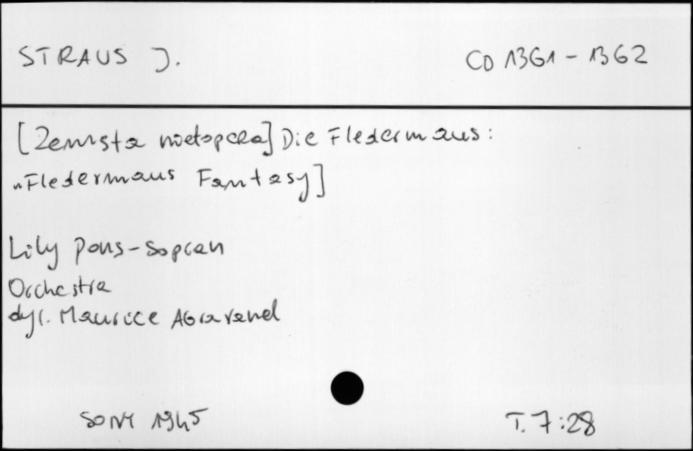 STRAUS J.
CD 1361-1362
[Zemsta nietopeza] Die Fledermaus:
"Fledermaus Fantasy]
Lily Pons-Sopran
Orchestra
dyr. Maurice Abravanel
SONY 1945
T. 7:28